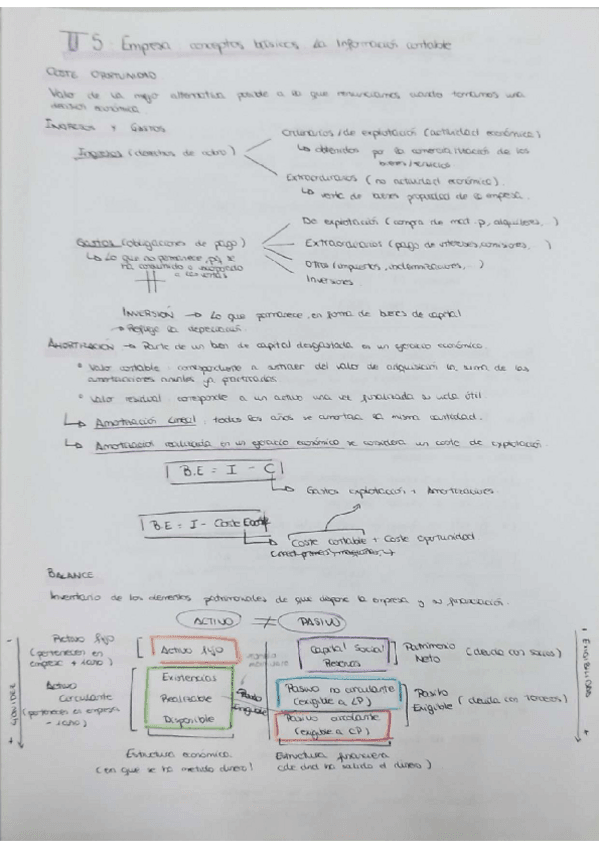 T 5: Empresa: conceptos básicos. La Información contable
COSTE OPORTUNIDAD
Valor de la mejor alternativa posible a la que renunciamos cuando tomamos una
decisión económica.
INGRESOS Y GASTOS
Ingresos (derechos de cobro)
Ordinarios / de explotación (actividad económica)
↳ obtenidos por la comercialización de los
bienes/servicios
Extraordinarios (no actividad económica).
↳ venta de bienes propiedad de la empresa.
Gastos (obligaciones de pago)
↳ Lo que no permanece, pq se
ha consumido o incorporado
De explotación (compra de mat. p, alquileres, ..)
Extraordinarios (pago de intereses, comisiones, ..)
Otros (impuestos, indemnizaciones, ..)
Inversiones
INVERSIÓN → Lo que permanece, en forma de bienes de capital
→ Refleja la depreciación.
AMORTIZACIÓN → Parte de un bien de capital desgastada en un ejercicio económico.
• Valor contable: correspondiente a sustraer del valor de adquisición la suma de las
amortizaciones anuales ya practicadas
• Valor residual: corresponde a un activo una vez finalizada su vida útil.
↳ Amortización Lineal: todos los años se amortiza la misma cantidad.
↳ Amortización realizada en un ejercicio económico se considera un coste de explotación.
B.E = I - C
↳ Gastos explotación + Amortizaciones
B.E = I - Coste Econ
↳ Coste contable + Coste oportunidad
BALANCE
Inventario de los elementos patrimoniales de que dispone la empresa y su financiación.
ACTIVO ≠ PASIVO
Activo fijo
(pertenecen en
empresa + 1 año)
Activo fijo
Capital Social
Reservas
Patrimonio
Neto
(deuda con socios)
Activo
Circulante
(pertenecen a empresa
- 1 año)
Existencias
Realizable
Disponible
Pasivo
Exigible
Pasivo no circulante
(exigible a LP)
Pasivo circulante
(exigible a CP)
Pasivo
Exigible
(deuda con terceros)
- LIQUIDEZ +
- EXIGIBILIDAD +
Estructura económica.
(en que se ha metido dinero)
Estructura financiera
(de dnd ha salido el dinero)